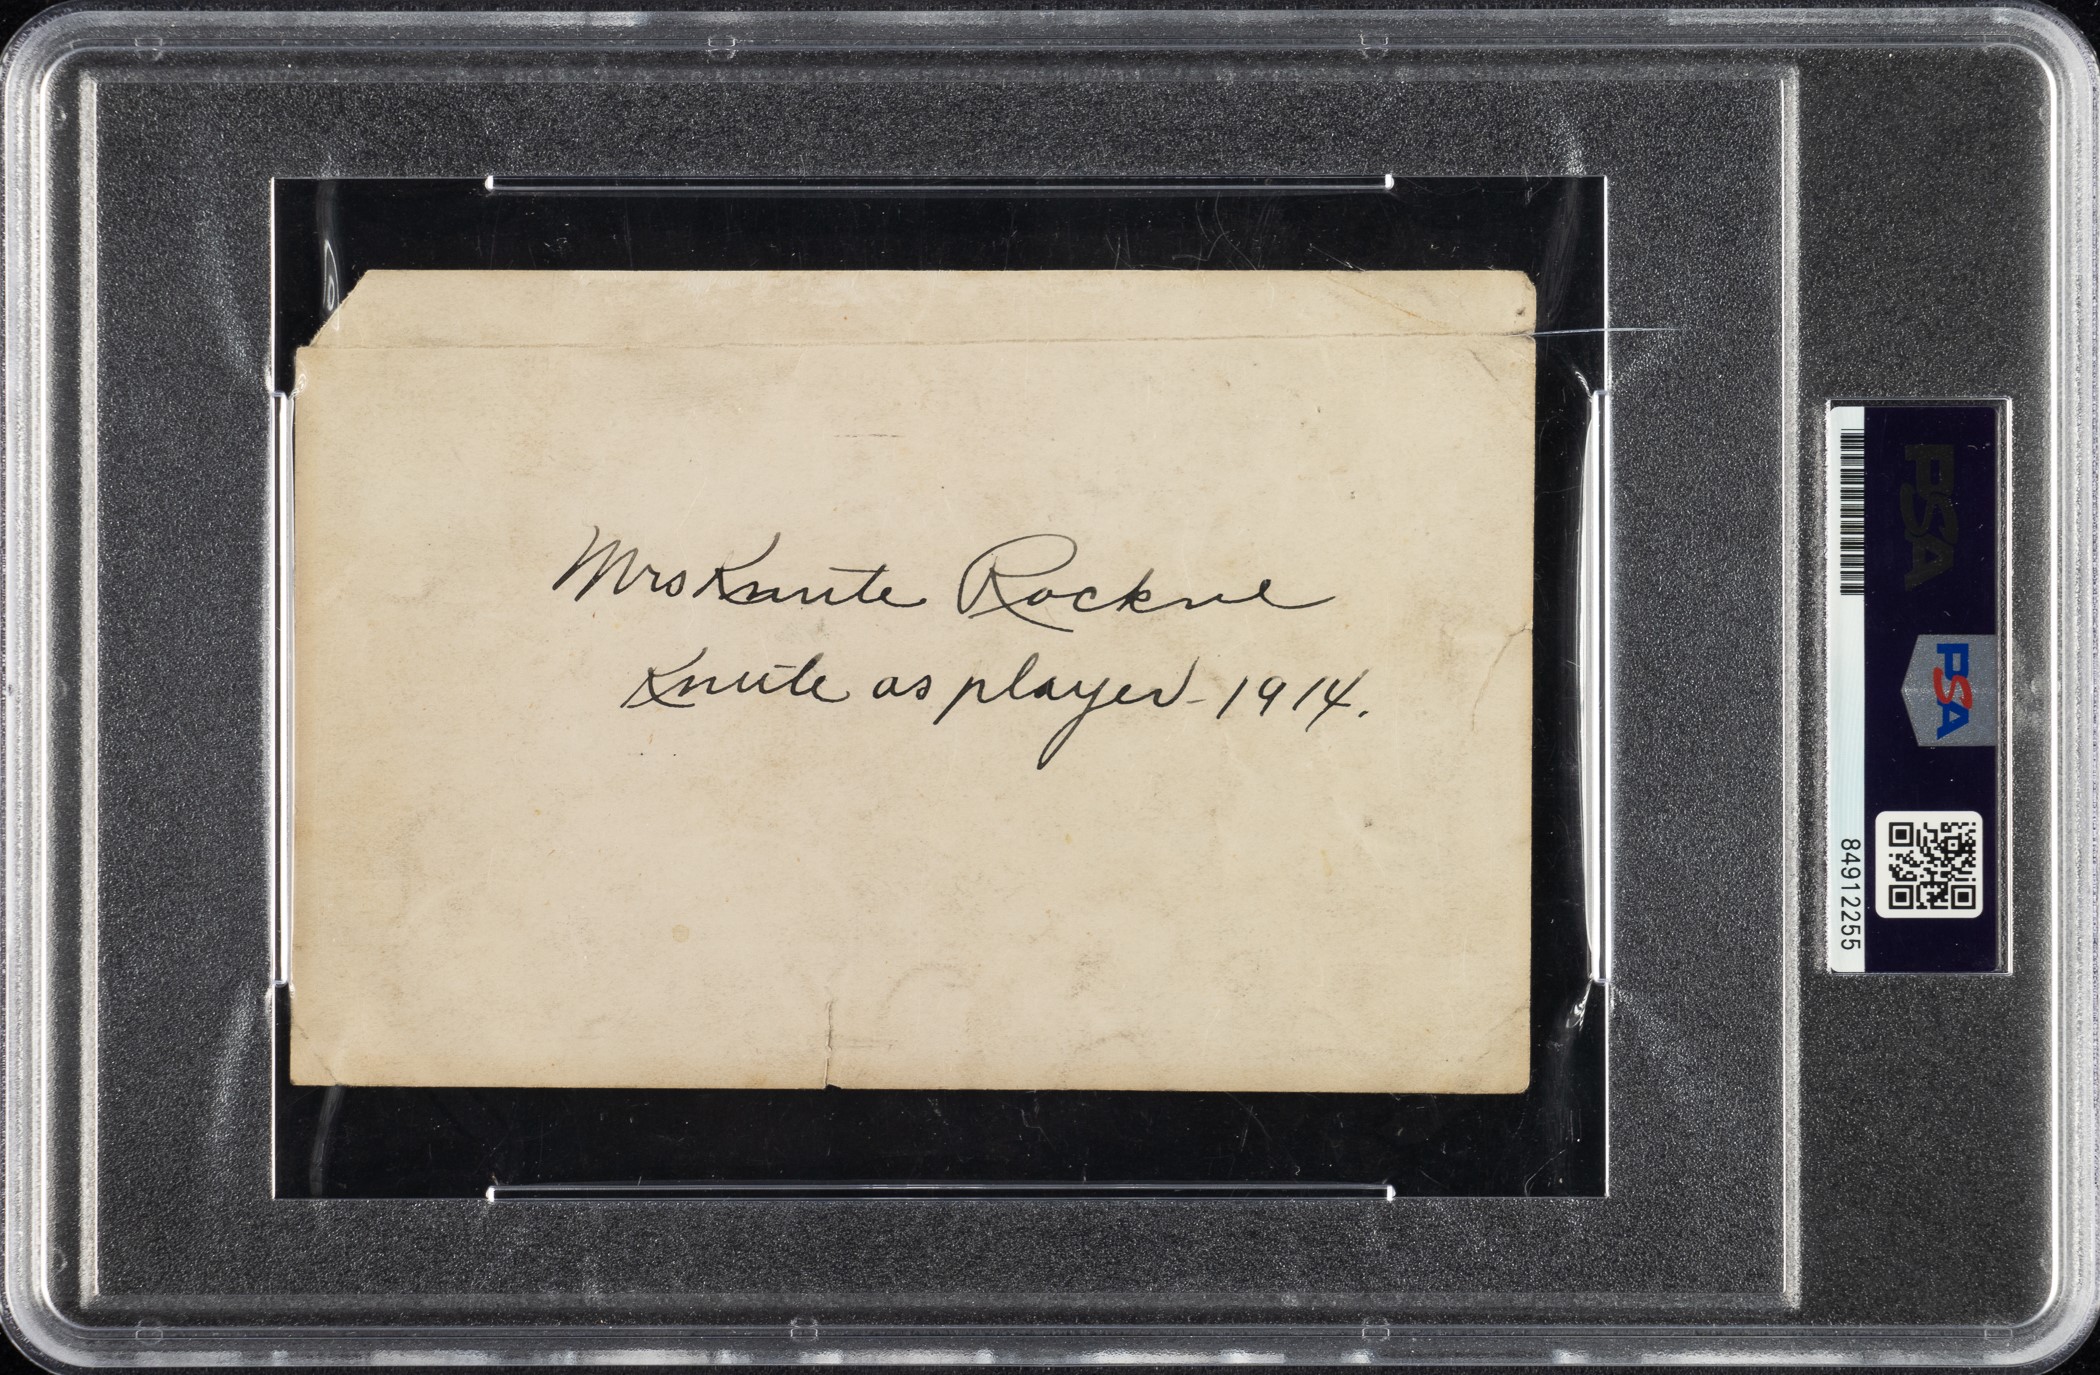 Mrs Knute Rockne
Knute as player - 1914.
PSA
PSA
84912255